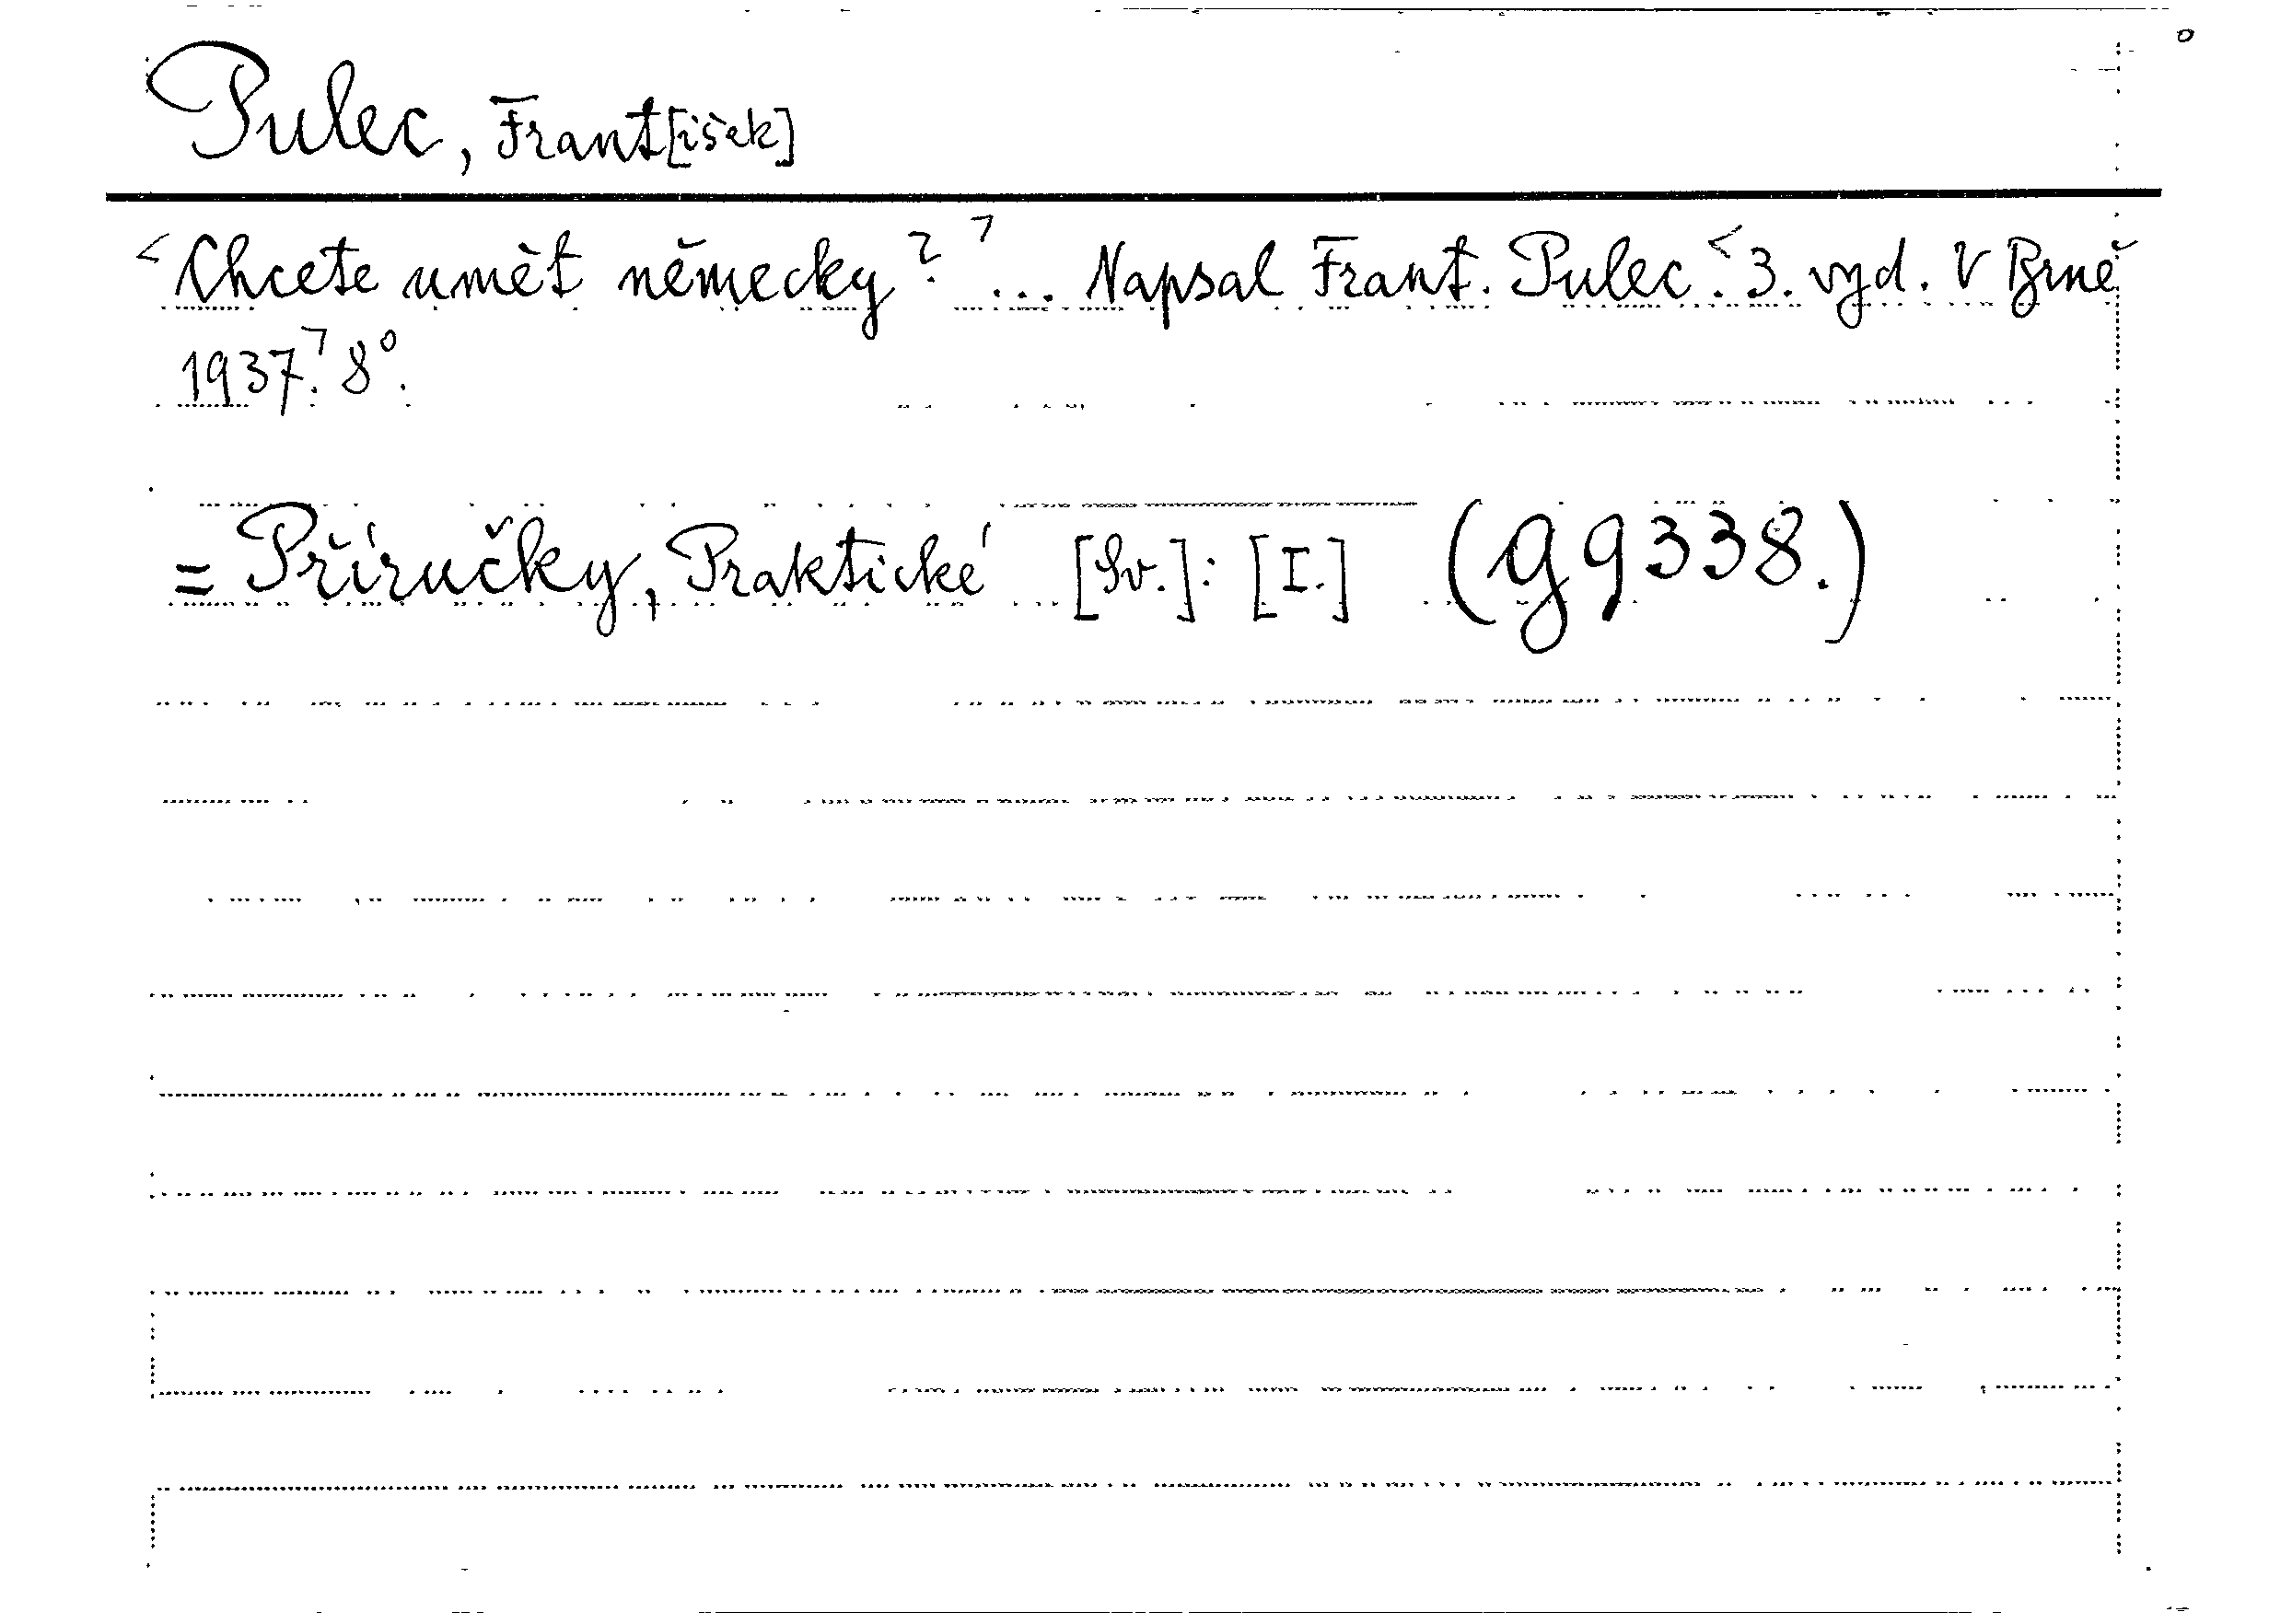 Pulec, Frant[išek]
<Chcete umět německy?> ... Napsal Frant. Pulec. <3. vyd. V Brně
1937.> 8°.
= Příručky, Praktické [Sv.]: [I.] (g9338.)